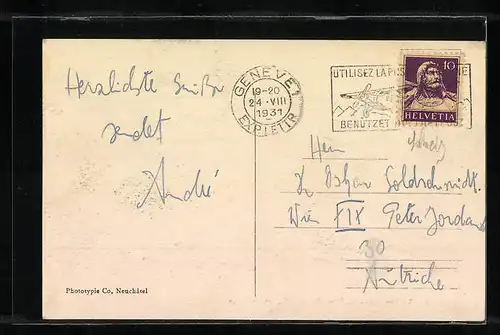 Herzlichste Grüße
sendet
André
GENÈVE 1
19-20
24.VIII
1931
EXP. LETTR.
UTILISEZ LA POSTE
BENÜTZET
10
HELVETIA
Herrn
Dr Oskar Goldschmidt
Wien XIX Peter Jordanstr
30
Autriche
Phototypie Co, Neuchâtel